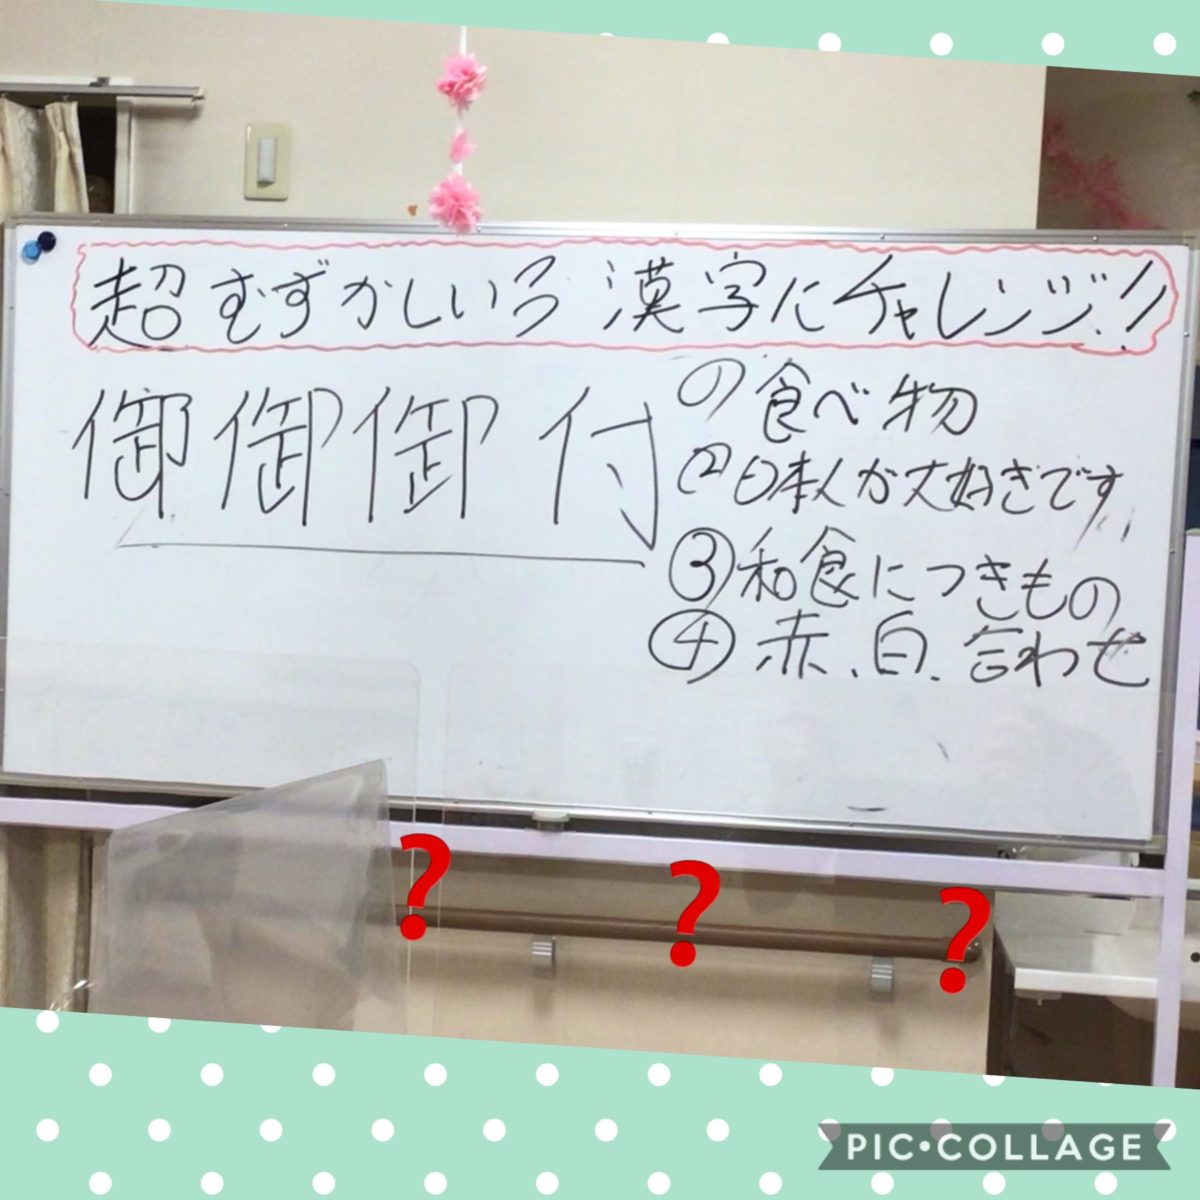 超むずかしいろ漢字にチャレンジ!!
御御御付
①食べ物
②日本人が大好きです
③和食につきもの
④赤、白、合わせ
? ? ?
PIC•COLLAGE